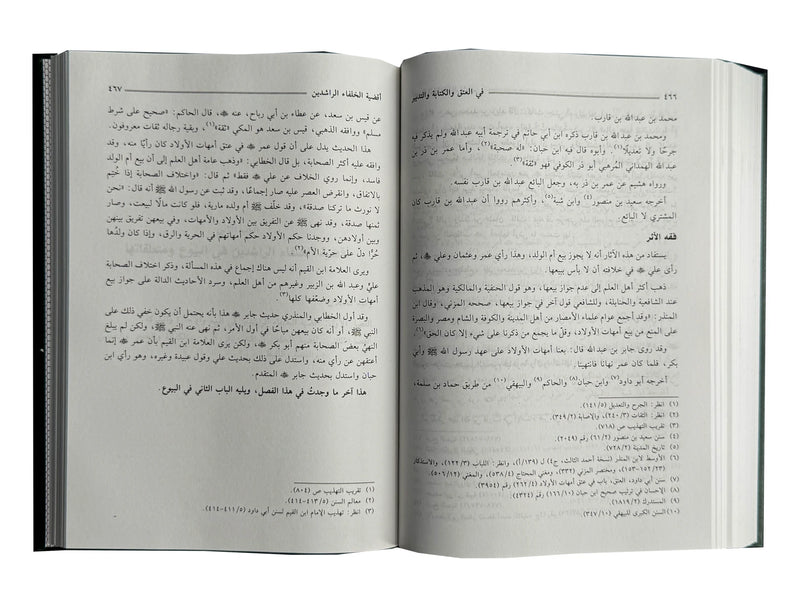 ٤٦٦
في العتق والكتابة والتدبير
محمد بن عبدالله بن قارب.
ومحمد بن عبدالله بن قارب ذكره ابن أبي حاتم في ترجمة أبيه عبد الله ولم يذكر فيه
جرحًا ولا تعديلًا(١). وأبوه قال فيه ابن حبان: «له صحبة»(٢)، وأما عمر بن ذر بن
عبدالله الهمداني المرهبي أبو ذر الكوفي فهو «ثقة»(٣)
ورواه هشيم عن عمر بن ذر به، وجعل البائع عبدالله بن قارب نفسه.
أخرجه سعيد بن منصور(٤) وابن شبة(٥)، وأكثرهم رووا أن عبدالله بن قارب كان
المشتري لا البائع.
فقه الأثر
يستفاد من هذه الآثار أنه لا يجوز بيع أم الولد، وهذا رأي عمر وعثمان وعلي، ثم
رأى علي في خلافته أن لا بأس ببيعها.
ذهب أكثر أهل العلم إلى عدم جواز بيعها، وهو قول الحنفية والمالكية وهو المذهب
عند الشافعية والحنابلة، وللشافعي قول آخر في جواز بيعها، صححه المزني، وقال ابن
المنذر: «وقد أجمع عوام علماء الأمصار من أهل المدينة والكوفة والشام ومصر والبصرة
على المنع من بيع أمهات الأولاد، وقلّ ما يجمع من ذكرنا على شيء إلا كان الحق»(٦).
وقد روى جابر بن عبدالله قال: بعنا أمهات الأولاد في عهد رسول الله ﷺ وأبي
بكر، فلما كان عمر نهانا فانتهينا.
أخرجه أبو داود(٧) وابن حبان(٨) والحاكم(٩) والبيهقي(١٠) من طريق حماد بن سلمة،
(١) انظر: الجرح والتعديل (١٤١/٥).
(٢) انظر: الثقات (٢٤٠/٣)، والإصابة (٣٤٩/٢).
(٣) تقريب التهذيب ص (٧١٨).
(٤) سنن سعيد بن منصور (٦١/٢) رقم (٢٠٤٩).
(٥) تاريخ المدينة (٧٢٨/٢).
(٦) الأوسط لابن المنذر (نسخة أحمد الثالث، ج٤ ل ١٣٩/أ)، وانظر: اللباب (١٢٢/٣)، والاستذكار
(١٥٢/٢٣-١٥٣)، ومختصر المزني (٣٣٢)، ومغني المحتاج (٥٣٨/٤)، والمغني (٥٠٦/١٢).
(٧) سنن أبي داود، العتق، باب في عتق أمهات الأولاد (٢٦٢/٤) رقم (٣٩٥٤).
(٨) الإحسان في ترتيب صحيح ابن حبان (١٦٦/١٠) رقم (٤٣٢٤).
(٩) المستدرك (١٨١٩/٢).
(١٠) السنن الكبرى للبيهقي (٣٤٧/١٠).
أقضية الخلفاء الراشدين
٤٦٧
عن قيس بن سعد، عن عطاء بن أبي رباح، عنه، قال الحاكم: «صحيح على شرط
مسلم» ووافقه الذهبي، قيس بن سعد هو المكي «ثقة»(١)، وبقية رجاله ثقات معروفون.
هذا الحديث يدل على أن قول عمر في عتق أمهات الأولاد كان رأيًا منه، وقد
وافقه عليه أكثر الصحابة، بل قال الخطابي: «وذهب عامة أهل العلم إلى أن بيع أم الولد
فاسد، وإنما روي الخلاف عن علي فقط» ثم قال: «واختلاف الصحابة إذا خُتِم
بالاتفاق، وانقرض العصر عليه صار إجماعًا، وقد ثبت عن رسول الله ﷺ أنه قال: «نحن
لا نورث ما تركنا صدقة»، وقد خلّف أم ولده مارية، فلو كانت مالًا لبيعت، وصار
ثمنها صدقة، وقد نهى ﷺ عن التفريق بين الأولاد والأمهات، وفي بيعهن تفريق بينهن
وبين أولادهن، ووجدنا حكم الأولاد حكم أمهاتهم في الحرية والرق، وإذا كان ولدُها
حُرًّا دلّ على حرّية الأم»(٢)
ويرى العلامة ابن القيم أنه ليس هناك إجماع في هذه المسألة، وذكر اختلاف الصحابة
عليٍّ وعبد الله بن الزبير وغيرهم من أهل العلم، وسرد الأحاديث الدالة على جواز بيع
أمهات الأولاد وضعّفها كلها(٣).
وقد أول الخطابي والمنذري حديث جابر هذا بأنه يحتمل أن يكون خفي ذلك على
النبي ﷺ، أو أنه كان بيعهن مباحًا في أول الأمر، ثم نهى عنه النبي ﷺ، ولكن لم يبلغ
النهيُ بعضَ الصحابة منهم أبو بكر، ولكن يرى العلامة ابن القيم بأن عمر إنما
أعتقهن عن رأي منه، واستدل على ذلك بحديث علي وقول عبيدة وغيره، وهو رأي ابن
حبان واستدل بحديث جابر المتقدم.
هذا آخر ما وجدتُ في هذا الفصل، ويليه الباب الثاني في البيوع.
(١) تقريب التهذيب ص (٨٠٤).
(٢) معالم السنن (٤١٣/٥-٤١٤).
(٣) انظر: تهذيب الإمام ابن القيم لسنن أبي داود (٤١١/٥-٤١٤).